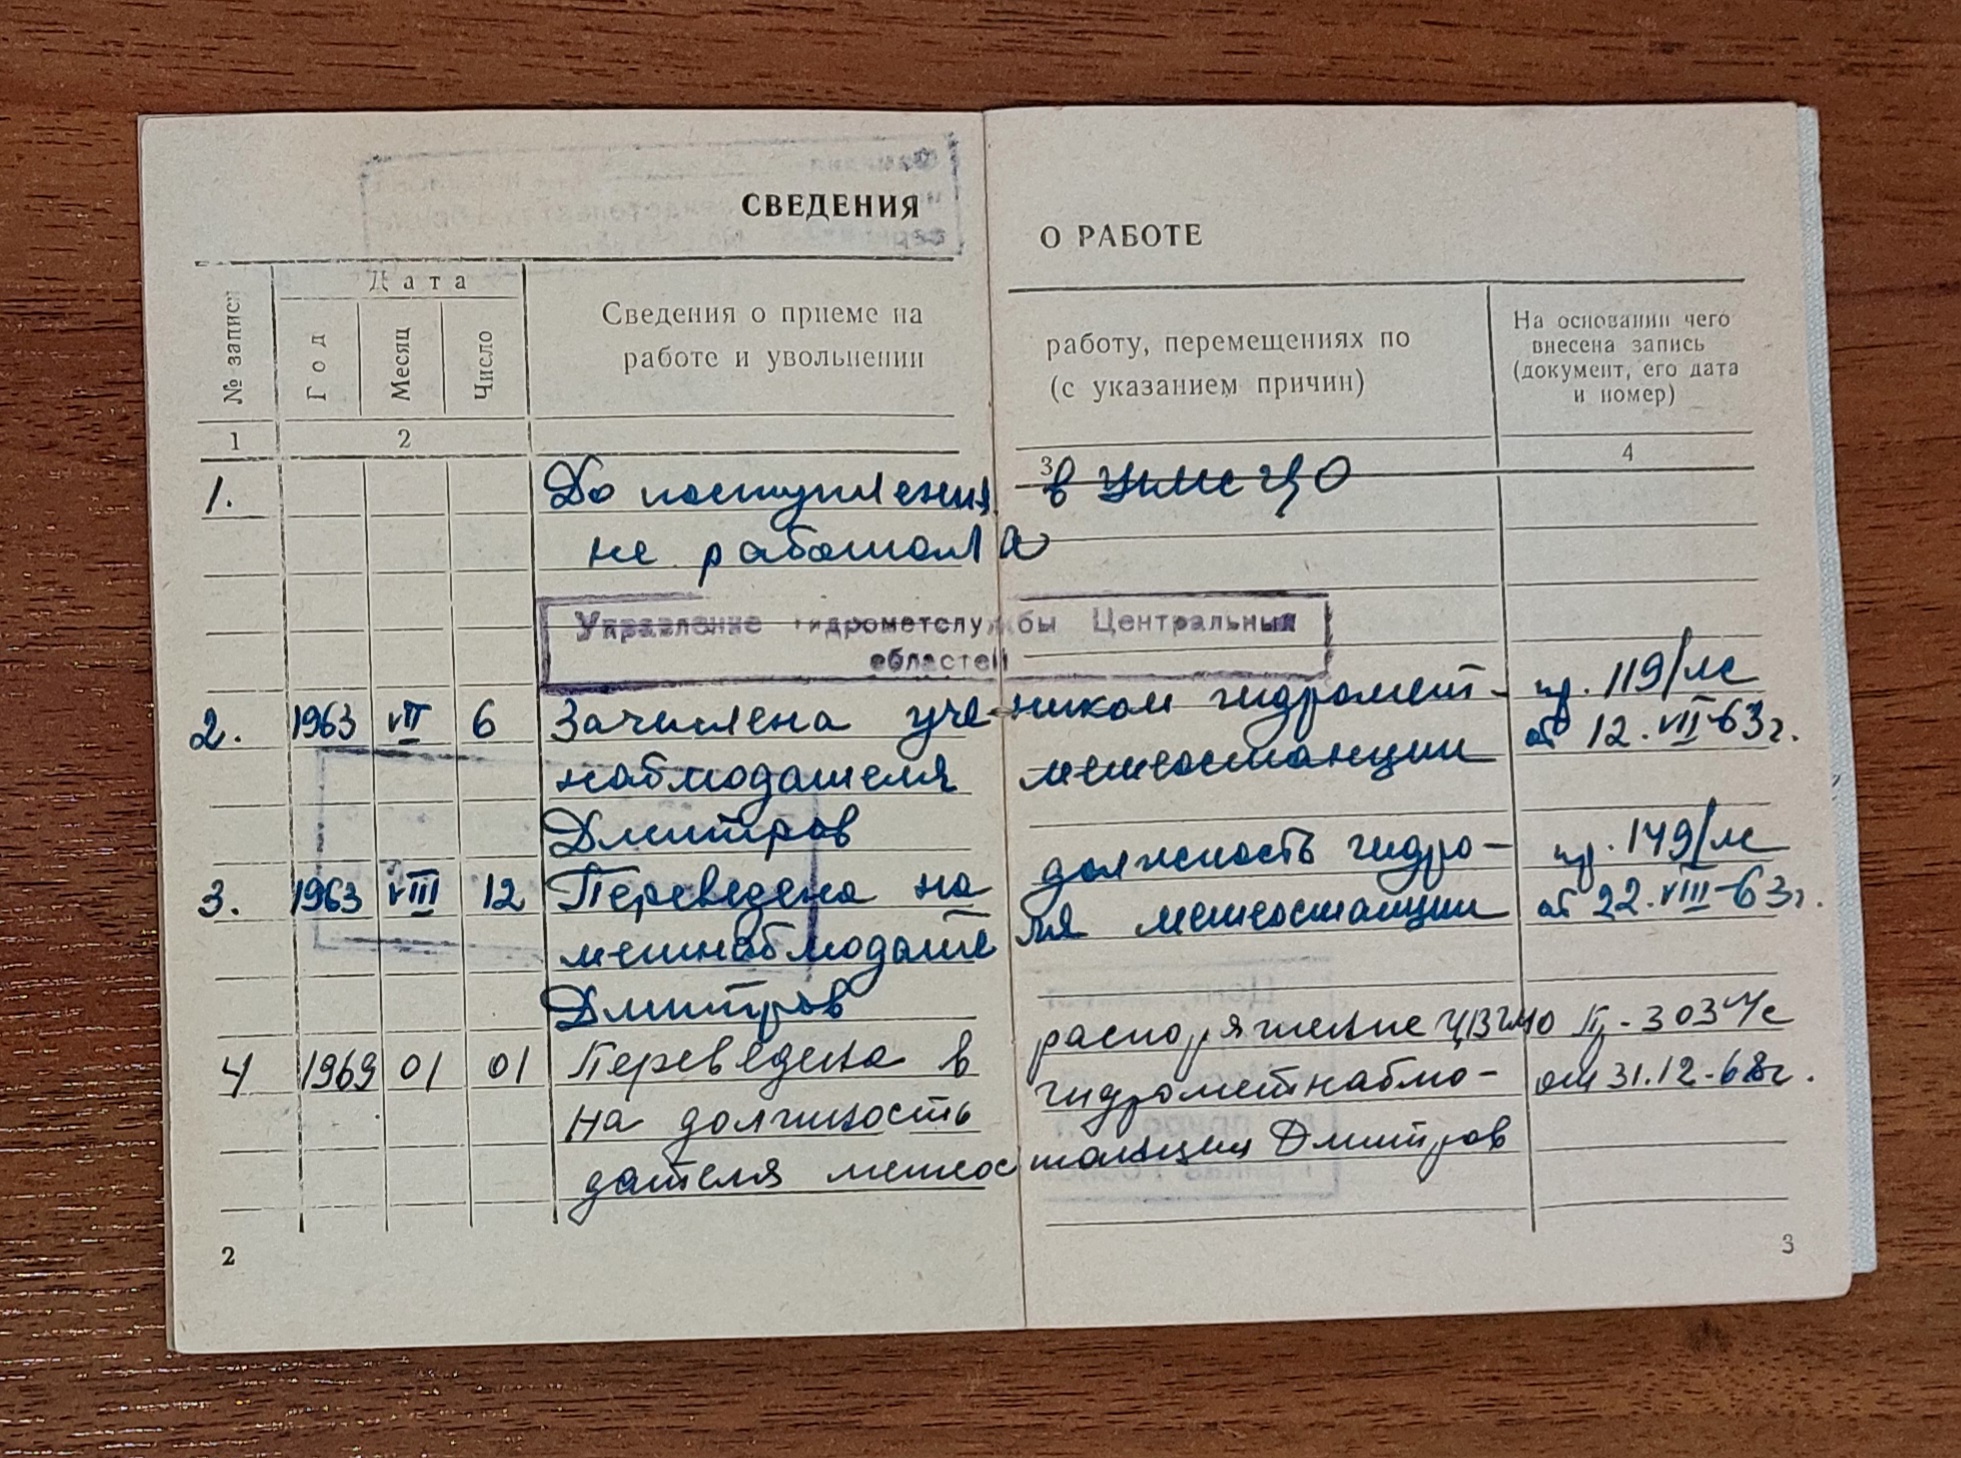 СВЕДЕНИЯ О РАБОТЕ
№ записи
Дата
Год
Месяц
Число
Сведения о приеме на работу, перемещениях по
работе и увольнении (с указанием причин)
На основании чего
внесена запись
(документ, его дата
и номер)
1 2 3 4
1. До поступления в УГМС ЦО
не работала
Управление гидрометслужбы Центральных
областей
2. 1963 VII 6 Зачислена учеником гидромет- пр. 119/лс
наблюдателя метеостанции от 12.VII-63г.
Дмитров
3. 1963 VIII 12 Переведена на должность гидро- пр. 149/лс
метнаблюдателя метеостанции от 22.VIII-63г.
Дмитров
4 1969 01 01 Переведена в распоряжение ЦВГМО Пр-303 л/с
на должность гидрометнаблю- от 31.12-68г.
дателя метеостанции Дмитров
2
3